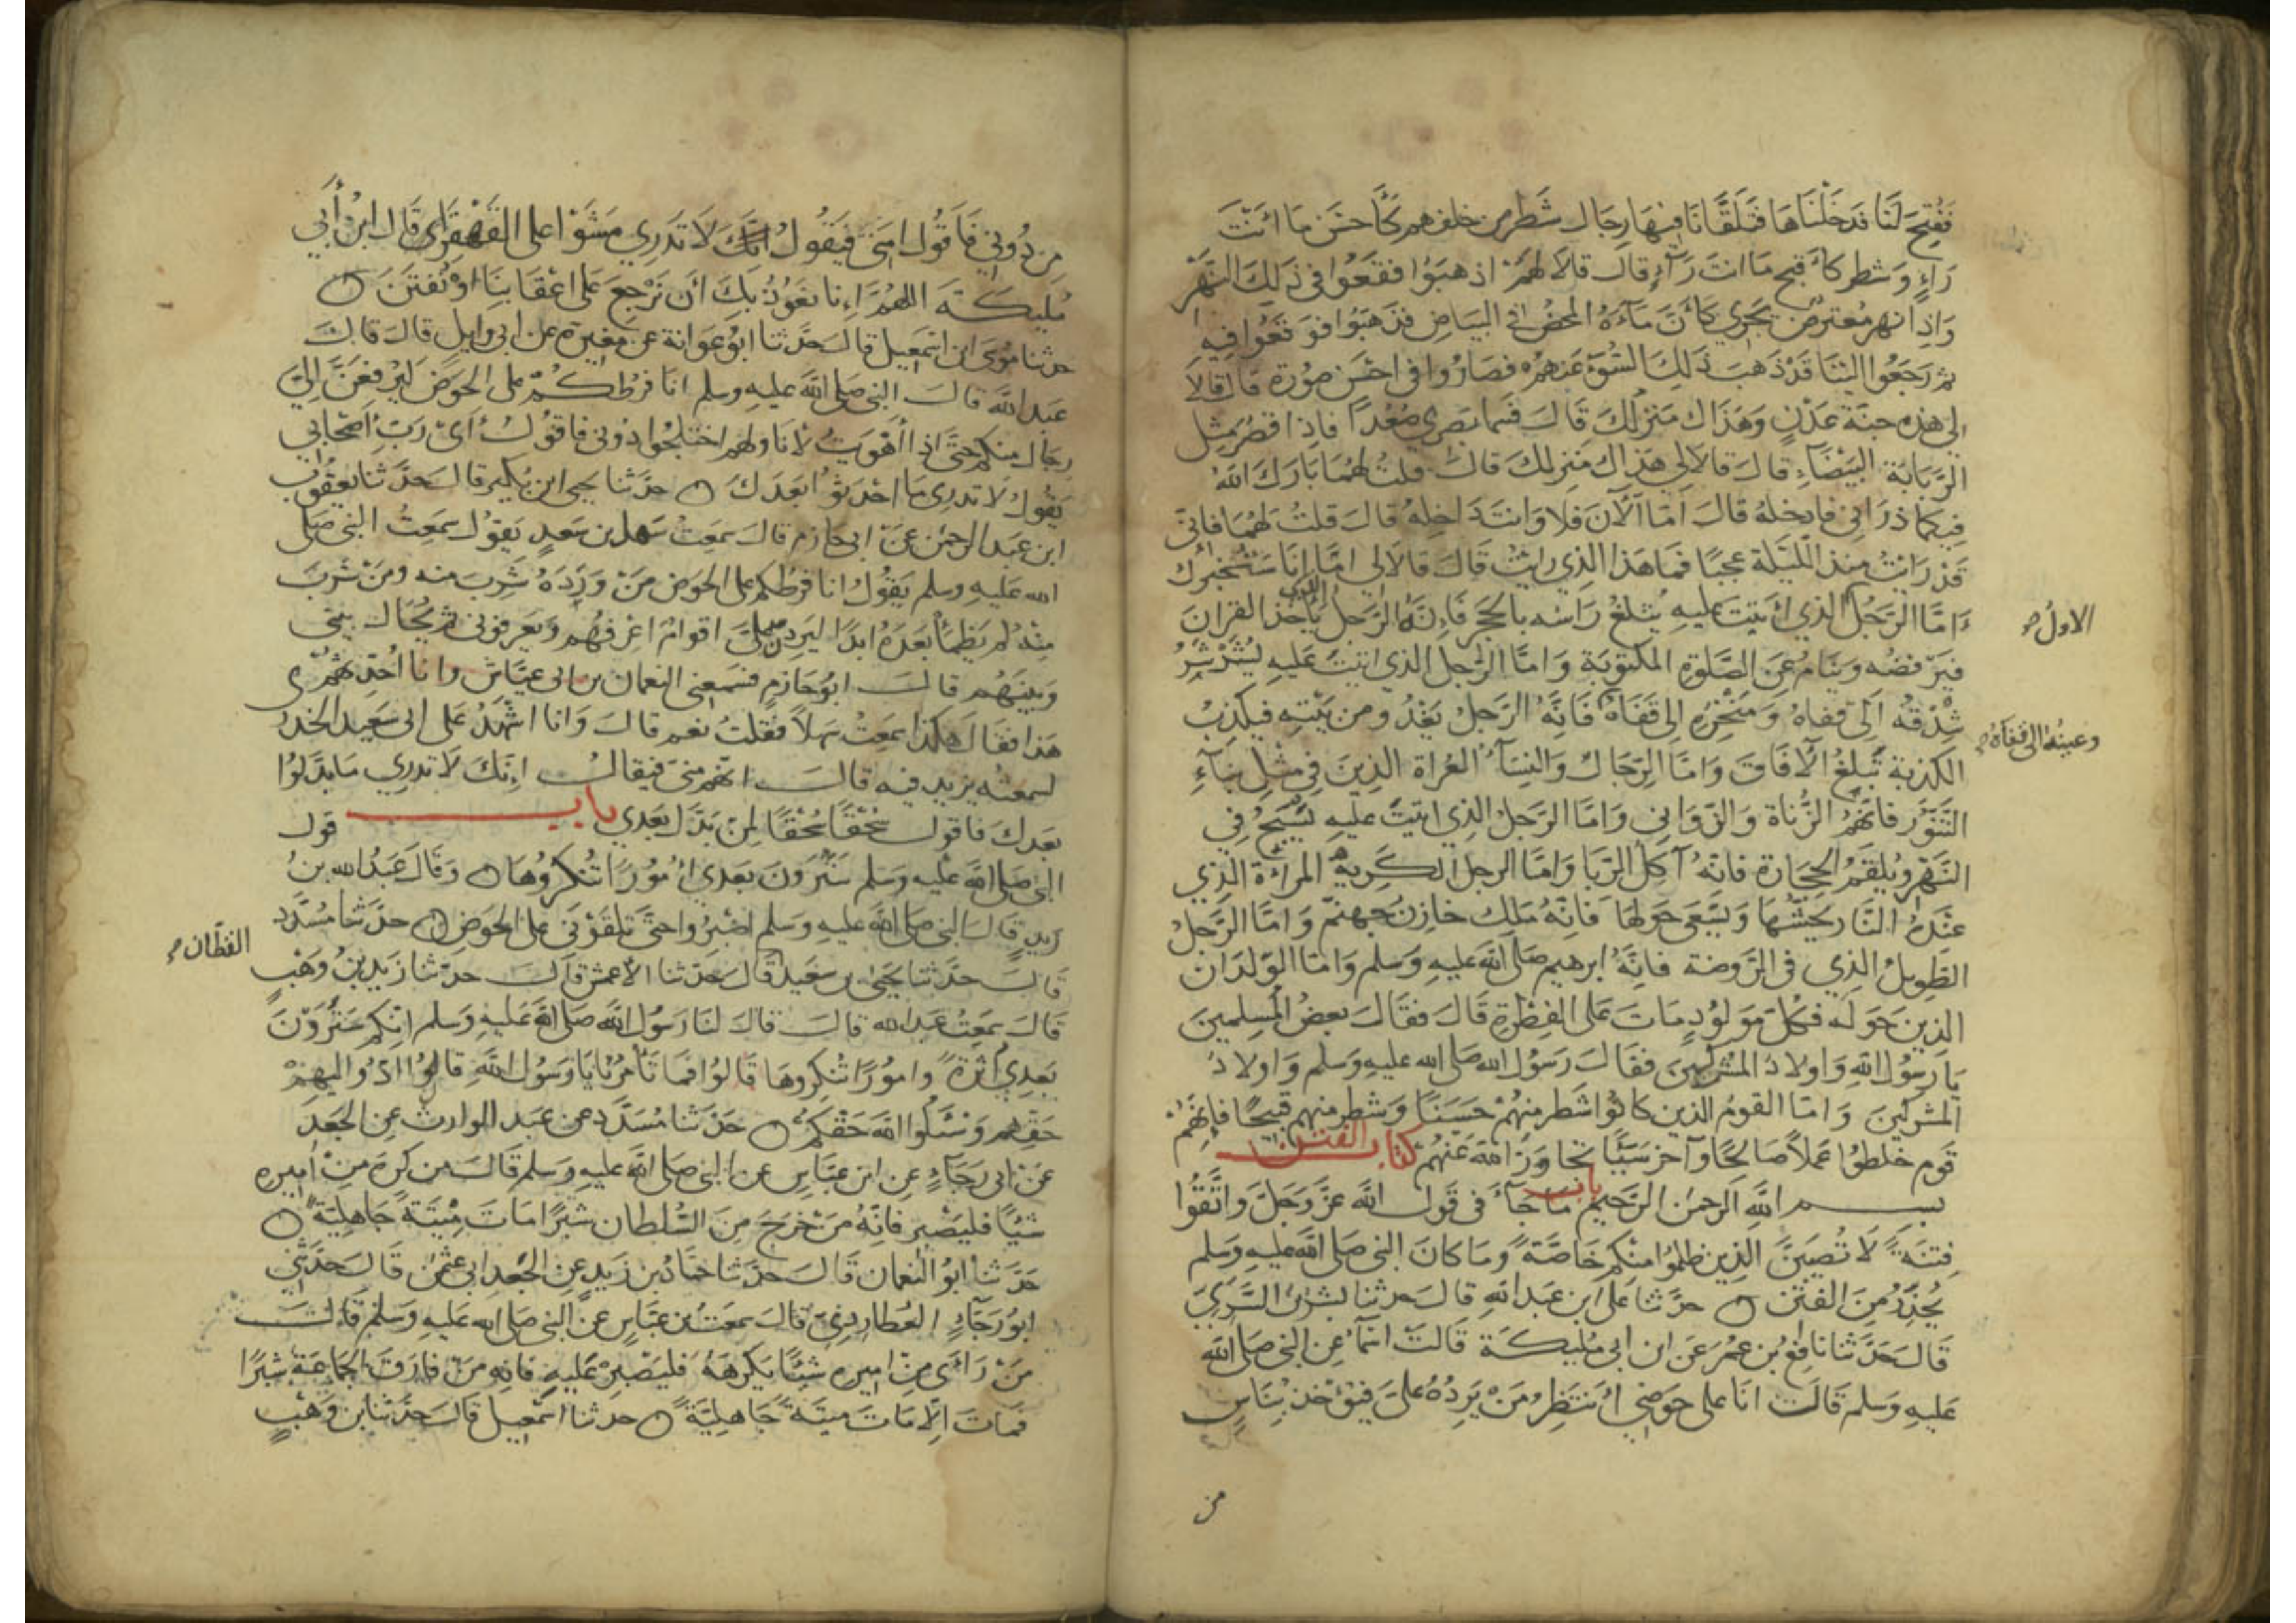 فَفُتِحَ لَنَا فَدَخَلْنَاهَا فَتَلَقَّانَا فِيهَا رِجَالٌ شَطْرٌ من خلقهم كَأَحْسَن مَا انْتَ
رَاءٍ وَشطر كأقبح مَا انتَ رَآءٍ قال قَالَا لهُمْ اذهبُوا فقعُوا في ذَلِكَ النَّهْرِ
وَاذا نهر مُعترض يَجْرِي كَأَنَّ مَاءَهُ المحضُ في البَيَاضِ فذهَبُوا فوَقَعُوا فيهِ
ثم رَجَعُوا اليْنَا قَدْ ذهبَ ذَلِكَ السُّوءُ عَنهم فصَارُوا في احْسَن صُورَة قال قَالا
لي هذه جنة عَدْنٍ وَهَذَاك مَنزلُكَ قَالَ فَسَما بَصَري صُعُدًا فاذا قصْر مِثل
الرَّبَابَة البَيْضَاءِ قالَ قالا لي هذاك مَنزلكَ قالَ قلتُ لهُمَا بَارَكَ اللهُ
فيكما ذرَاني فادخلهُ قالَ أمّا الآنَ فلا وَانتَ دَاخِلهُ قالَ قلتُ لهُمَا فاني
قَدْ رَايتُ منذ اللّيْلَة عَجبًا فَمَا هَذا الذِي رايتُ قَالَ قالا لي امَّا انَا سَنُخبرُك
أمَّا الرَّجُل الذي اتيتَ عليهِ يُثلغُ رَاسُه بالحجَر فَانّهُ الرَّجل يأخذ القرآنَ
الاول صح
فيَرْفضُه وينَامُ عَن الصَّلوةِ المكتوبَة وَامَّا الرَّجل الذي اتيتَ عَليهِ يُشَرْشَرُ
شِدْقهُ الَى قفاهُ وَمَنْخِرُه الى قَفَاهُ فَانّهُ الرَّجلُ يَغْدُو من بَيْتهِ فيكذبُ
وعينُه الى قفاهُ صح
الكذبَة تَبلغُ الآفَاقَ وَامَّا الرِّجَالُ وَالنِّسَاءُ العُرَاة الذِينَ في مثل بنَآءِ
التَّنُّور فانّهُمُ الزُّنَاة وَالزَّوَاني وَامَّا الرَّجلُ الذي اتيتَ عَليهِ يَسْبَحُ في
النَّهْرِ ويُلقَمُ الحجَارَة فانّهُ آكِلُ الرّبَا وَامَّا الرجل الكَرِيهُ المرْءَاة الذِي
عِنْدَهُ النَّار يَحُشُّهَا وَيَسْعَى حَوْلَهَا فَانّهُ مَلِكٌ خازِنُ جهنّم وَامَّا الرَّجلُ
الطَّويلُ الذِي في الرَّوضَة فانّهُ ابرهيم صَلى اللهُ عَليهِ وَسَلم وَامَّا الولدَانُ
الذينَ حَوْلهُ فكلّ مَوْلُودٍ مَاتَ عَلى الفِطْرَةِ قَالَ فقَالَ بَعضُ المسلمينَ
يَا رَسُولَ اللهِ وَاولَادُ المشركينَ فقالَ رَسُولُ الله صَلى الله عليهِ وَسَلم وَاولادُ
المشركينَ وَامَّا القومُ الذين كانُوا شَطر منهُمْ حَسَنًا وَشطر منهم قبيحًا فانّهُمْ
قوم خَلطُوا عَملًا صَالحًا وآخرَ سَيّئًا تجاوَزَ اللهُ عَنهُمْ كتاب الفتن
بسم اللهِ الرحمن الرّحيم باب مَا جَآءَ في قول الله عزّ وَجَلَّ واتَّقُوا
فِتنَةً لَا تُصِيبَنَّ الذِينَ ظلمُوا منكم خَاصَّةً وَمَا كانَ النبي صَلى اللهُ عليهِ وَسَلم
يُحَذِّرُ مِنَ الفتن حدّثنا عَلي ابن عَبد اللهِ قالَ حَدثنا بشر بن السَّرِيّ
قَالَ حَدَّثنا نَافِعُ بن عمَرَ عَن ابن ابي مُليكَة قَالَتْ اسْمَاءُ عنِ النبي صَلى الله
عَليهِ وَسَلم قَالَت انَا على حَوضي انتَظرُ مَنْ يَردُ عَليَّ فيُؤخذ بنَاسٍ
من
مِن دُوني فَأَقُول امّتي فيَقُولُ انَّكَ لَا تَدري مَشَوْا على القَهْقَرَى قَال ابنُ أَبي
مُليكَة اللهُمَّ انا نعُوذُ بكَ ان نَرْجِعَ عَلى اعْقَابنَا اوْ نُفتَنَ
حدثنا مُوسَى ابن اسْمعيل قالَ حَدَّثنا ابُو عوَانة عن مغيرة عن ابي وايل قالَ قالَ
عَبد الله قالَ النبي صَلى الله عَليهِ وسلم انَا فرَطُكُمْ على الحوض ليُرفعَنَّ اليَّ
رجَال منكم حتى اذا أهْوَيتُ لأنَاولهم اختلجُوا دُوني فاقُولُ أيْ رَبِّ اصْحَابي
يَقُولُ لَا تدرِي مَا احْدَثُوا بَعدَكَ حدّثنا يحيى ابن بُكير قالَ حَدَّثنا يعقوبُ
ابن عَبد الرحمن عَنْ ابي حَازم قالَ سَمعتُ سَهل بن سَعدٍ يَقوُل سَمعتُ النبي صَلى
الله عَليهِ وسلم يَقُولُ انا فرَطكم على الحوض مَنْ وَرَدَهُ شَرِبَ منه ومَنْ شَربَ
مِنْهُ لم يَظمَأ بَعدَهُ ابدًا ليَردنَّ عَليَّ اقوام اعْرفهُم وَيَعرفُوني ثم يُحَالُ بيني
وَبَينَهُم قالَ ابُو حَازمٍ فسَمِعَني النعمَان بن ابي عيَّاش وانا احدّثهُم
هَذا فقَالَ هكذا سَمعتَ سَهلًا فقلتُ نعم قالَ وَانا اشْهَدُ عَلى ابي سَعيد الخدري
لسمعتُه يزيد فيه قالَ انّهُم منّي فيقَالُ انّكَ لَا تدري مَا بَدَّلُوا
بَعدكَ فاقولُ سُحْقًا سُحْقًا لمن بَدَّلَ بَعدي باب قول
النبي صَلى الله عَليهِ وَسَلم سَتَرَوْنَ بَعدي امُورًا تُنكرُوهَا وَقَالَ عَبدُ الله بنُ
زَيدٍ قالَ النبي صَلى الله عَليهِ وَسَلم اصْبرُوا حتى تَلقَوْني عَلى الحوَض حدّثنا مُسَدّد
قَالَ حدَّثنا يَحيَى بن سَعيد قَالَ حَدّثنا الاعمش قالَ حدّثنا زَيد بنُ وَهْبٍ
القطّان صح
قَالَ سَمعتُ عَبد الله قالَ قالَ لنَا رَسُولُ الله صَلى الله عَليهِ وَسَلم انّكم سَتَرَوْنَ
بَعدِي اثَرَةً وامُورًا تُنكرُوهَا قَالُوا فمَا تَأمرُنَا يَا رَسُولَ اللهِ قالَ ادُّوا اليهمْ
حَقهُم وَسَلُوا اللهَ حَقكم حَدّثنا مُسَدَّد عن عَبد الوارثِ عن الجَعدِ
عَنْ ابي رَجَاءٍ عن ابن عبَّاس عن النبي صَلى الله عليهِ وَسَلم قالَ مَن كَرِهَ مِنْ اميره
شَيْئًا فليَصْبر فانّهُ مَنْ خرَجَ مِنَ السُّلطان شبْرًا مَاتَ مِيْتَةً جَاهليّةً
حَدّثنا ابُو النُّعمان قَالَ حَدّثنا حمَّاد بن زَيد عن الجَعد ابي عثمن قَالَ حَدّثني
ابُو رَجَاءٍ العُطاردِيّ قالَ سَمعتُ بن عبَّاسٍ عَن النبي صَلى الله عَليهِ وَسَلم قَالَ
مَنْ رَأَى مِنْ اميره شَيْئًا يَكرهُهُ فليَصْبرْ عَليهِ فانه مَنْ فارَقَ الجَمَاعَةَ شبْرًا
فمَاتَ الّا مَاتَ ميتَةً جَاهليّةً حدثنا اسْمعيل قالَ حَدّثنا بن وَهْبٍ